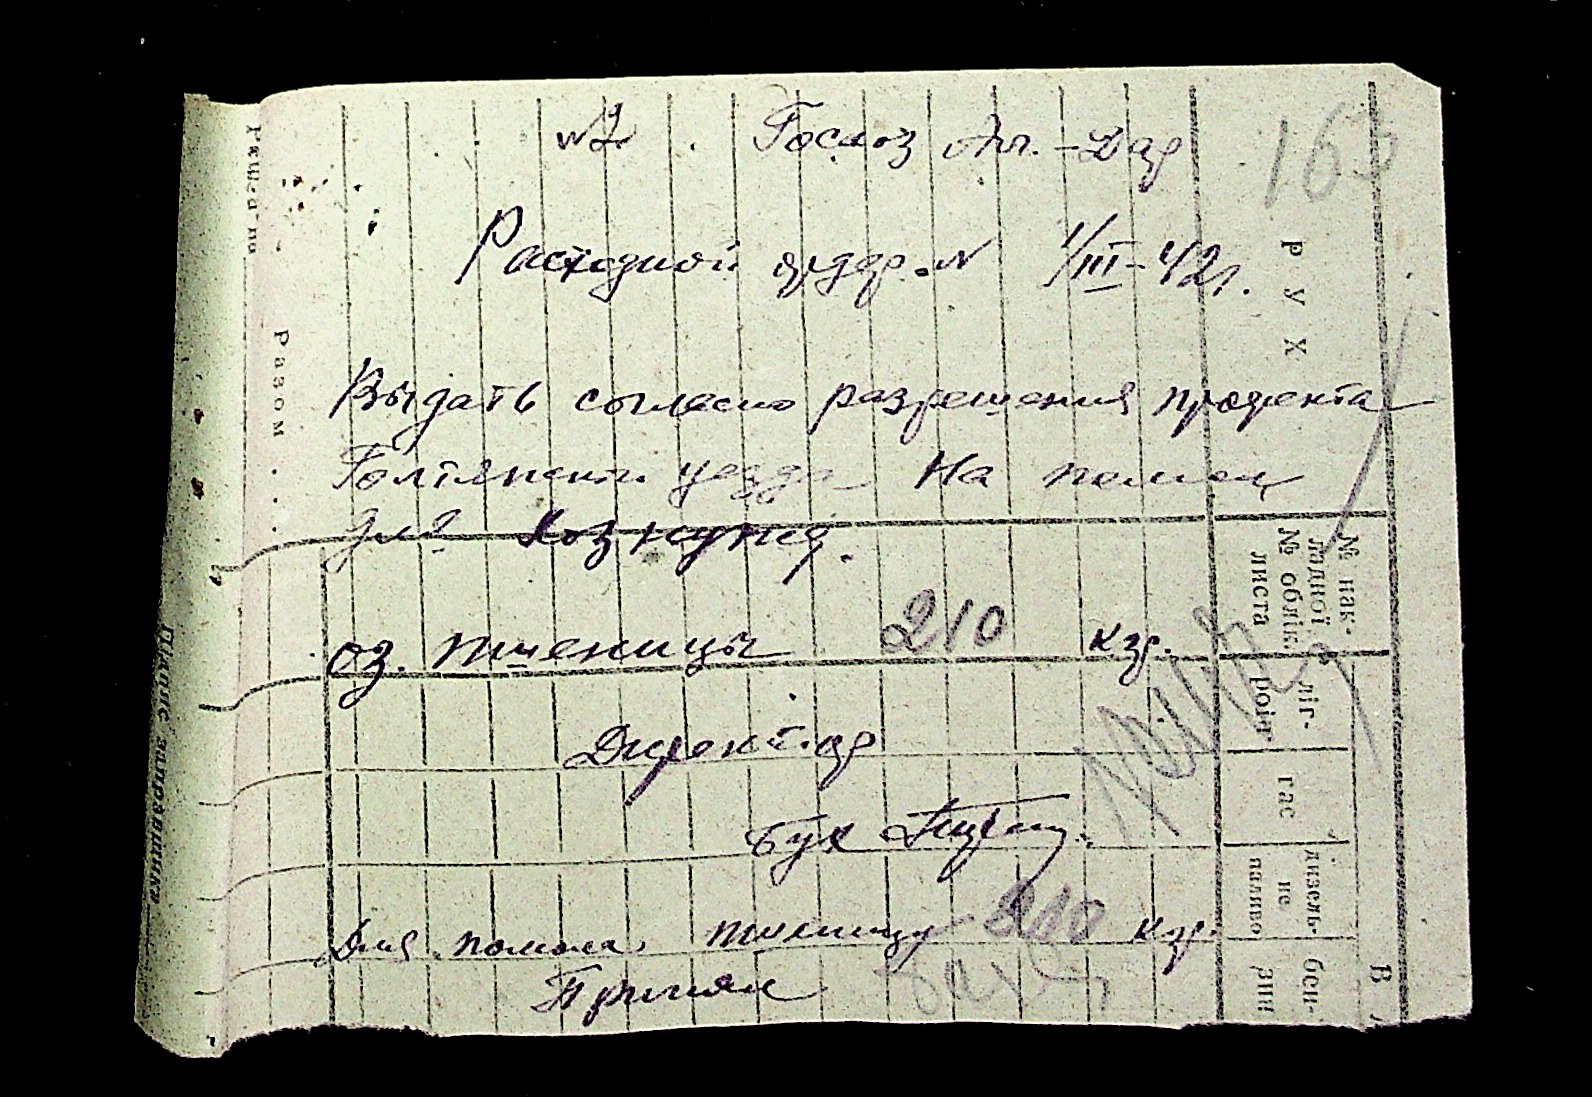 №2 Госхоз Ак.-Даг
163
Расходной ордер № 1/III-42г.
Выдать согласно разрешения профекта
Голтянского уезда На помол
для Хознужд.
оз. пшеницы 210 кгр.
Директор
Бух
Для помола пшеницу 210 кгр.
Принял
Разом . . .
Підпис заправщика
Р у х
№ нак-
ладної
№ облік.
листа
ліг-
роін
гас
дизель-
не
паливо
бен-
зин
В